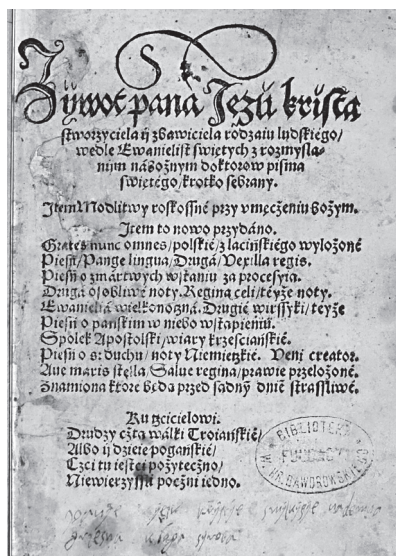 Zywot pana Jezu krista
stworzyciela ij zbawiciela rodzaiu ludskiego/
wedle Ewanielist swiętych z rozmysla-
nijm nabożnym doktorow pisma
swiętego/krotko sebrany.
Item Modlitwy roskossne przy vmęczeniu bożym.
Item to nowo przydano.
Grates nunc omnes/polskie/z lacinskiégo wyložoné
Piesn/Pange lingua/Druga/Vexilla regis.
Piesn o zmartwych wstaniu za procesyią.
Druga osobliwé noty. Regina celi/téyże noty.
Ewanielia wielkonoczna. Drugié wirssyki/téyże
Piesn o panskim w niebo wstąpieniu.
Spolek Apostolski/wiary krześcianskié.
Piesn o s: duchu/noty Niemieczkié. Veni creator.
Aue maris stella/Salue regina/prawie przeložoné.
Znamiona ktore będą przed sądny dnié strasliwé.
Ku tzcicielowi.
Drudzy cztą walki Troianskié/
Albo ij dzieie poganskié/
Czci tu iestci pożyteczno/
Niewierzyssli poczni iedno.
BIBLIOTEKA
FUNDACYI
W. HR. BAWOROWSKIEGO